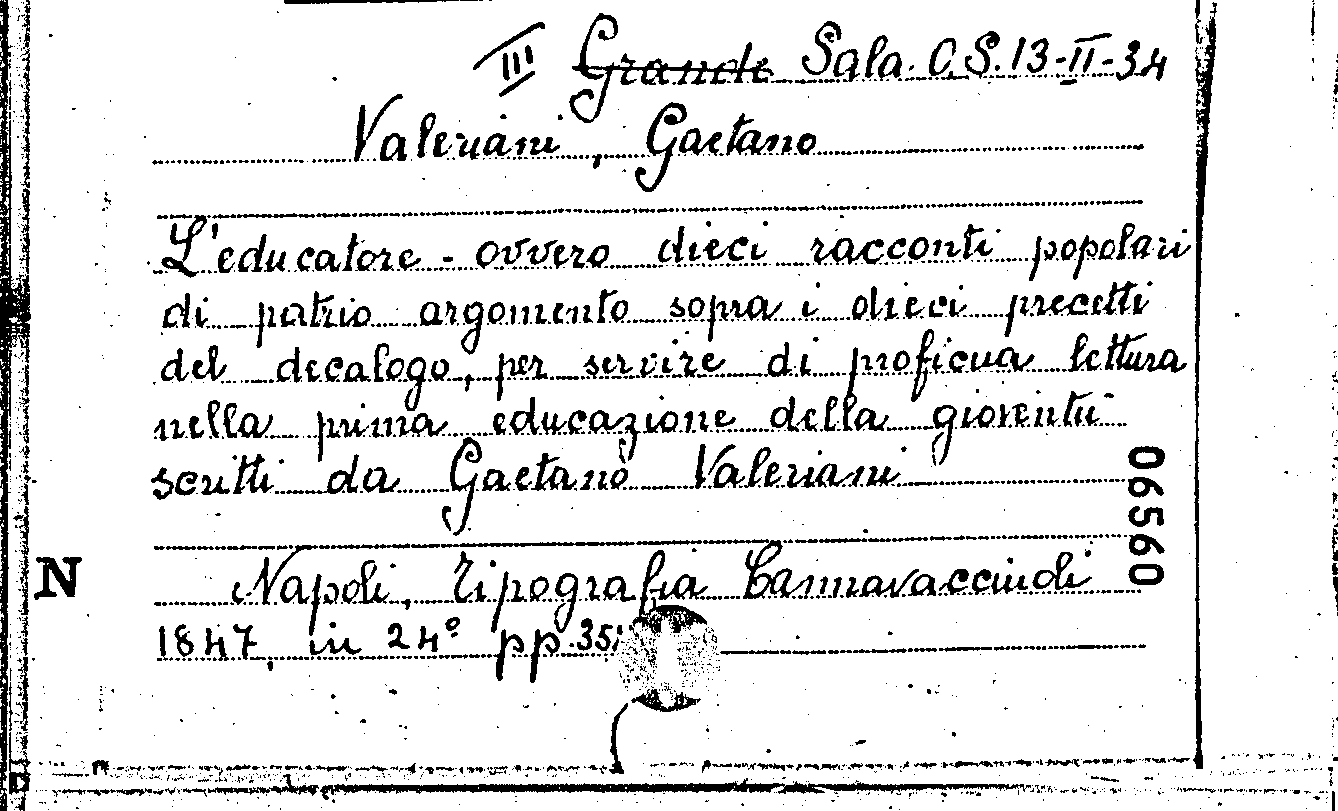 III Grande Sala. O.S.13-II-34
Valeriani, Gaetano
L'educatore - ovvero dieci racconti popolari
di patrio argomento sopra i dieci precetti
del decalogo, per servire di proficua lettura
nella prima educazione della gioventù
scritti da Gaetano Valeriani
06560
N
Napoli, Tipografia Cannavacciuoli
1847, in 24° pp.